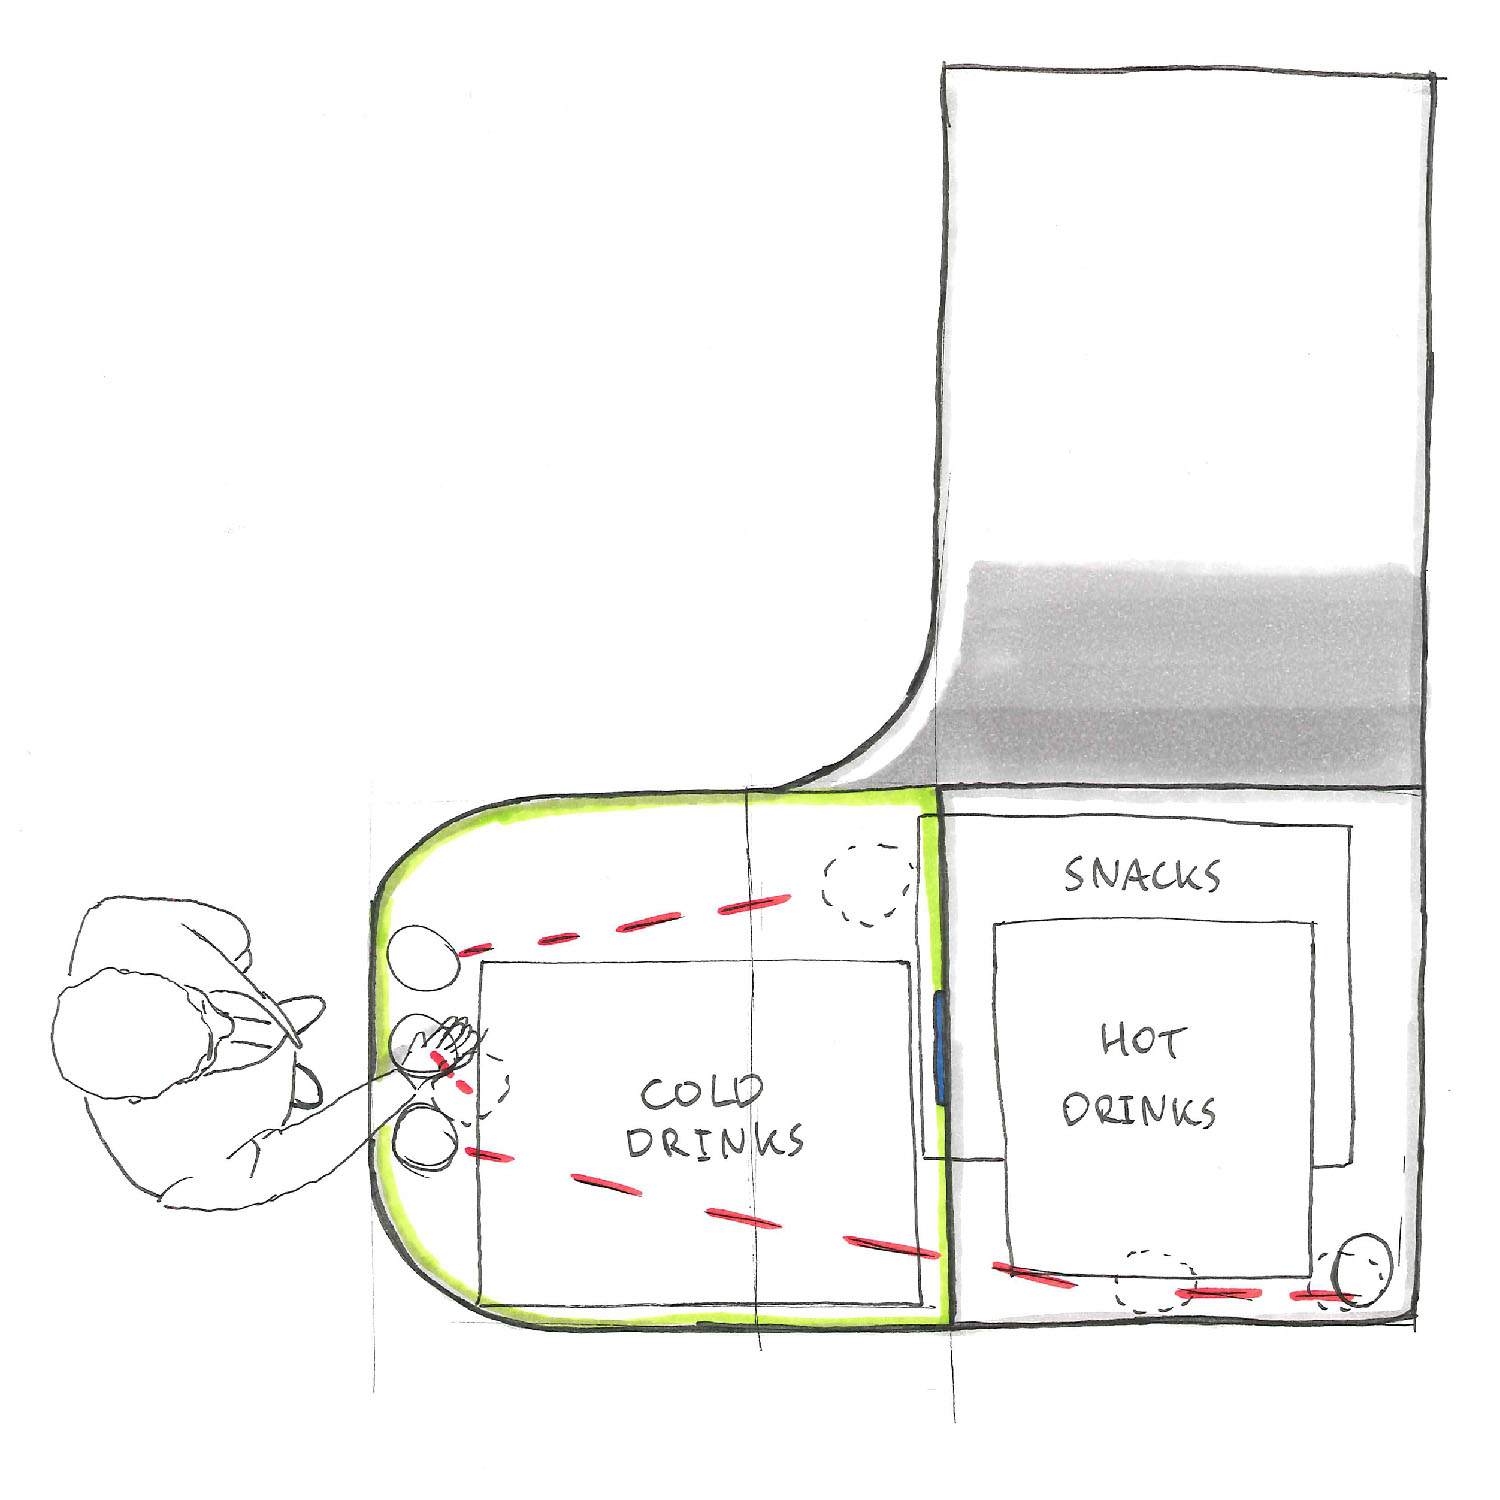 SNACKS
HOT
DRINKS
COLD
DRINKS